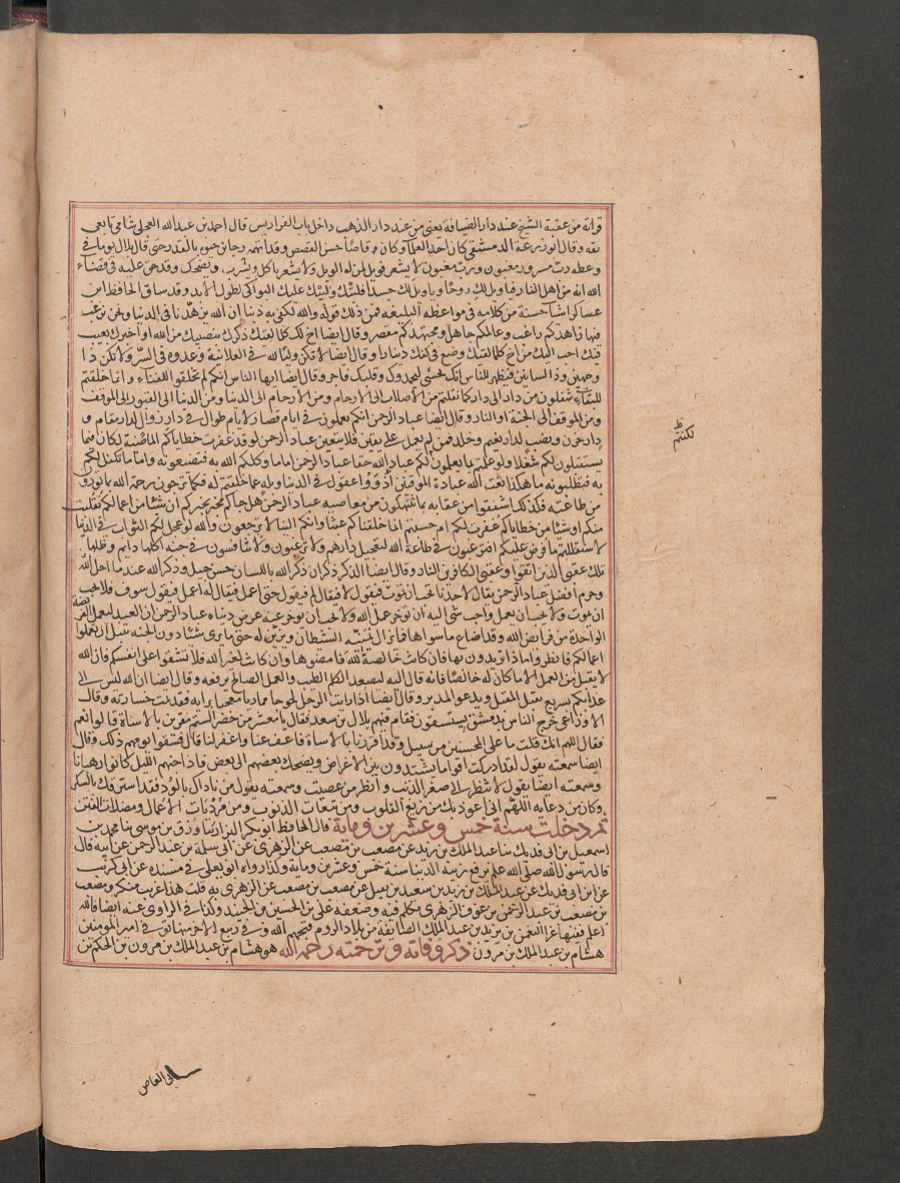 قراته من عقبة الشيخ عند دار الضيافة يعني من عند دار الذهب داخل باب الفراديس قال احمد بن عبد الله العجلي شامي تابعي
ثقه وقال ابو زرعة الدمشقي كان احد العلما وكان قاصا حسن القصص وقد اتهمه رجا بن حيوه بالقدر حتى قال بلال يوما في
وعظه رب مسرور مغبون ورب مغبون لا يشعر فويل لمن له الويل ولا يشعر ياكل ويشرب ويضحك وقد حق عليه في قضاء
الله انه من اهل النار فيا ويل لك روحا ويا ويل لك جسدا فلتبك ولتبك عليك البواكي لطول الابد وقد ساق الحافظ ابن
عساكر اشيا حسنة من كلامه في مواعظه البليغه فمن ذلك قوله والله لكفى به ذنبا ان الله يزهدنا في الدنيا ونحن نرغب
فيها زاهدكم راغب وعالمكم جاهل ومجتهدكم مقصر وقال ايضا اخ لك كلما لقيك ذكرك بنصيبك من الله او اخبرك بعيب
فيك احب اليك من اخ كلما لقيك وضع في كفك دينارا وقال ايضا لا تكن وليا لله في العلانية وعدوه في السر ولا تكن ذا
وجهين وذا لسانين فتظهر للناس انك تخشى الله ليحمدوك وقلبك فاجر وقال ايضا ايها الناس انكم لم تخلقوا للفناء وانما خلقتم
للبقاء تنقلون من دار الى دار كما نقلتم من الاصلاب الى الارحام ومن الارحام الى الدنيا ومن الدنيا الى القبور الى الموقف
ومن الموقف الى الجنة او النار وقال ايضا عباد الرحمن انكم تعملون في ايام قصار لايام طوال في دار زوال لدار مقام و
دار حزن ونصب لدار نعيم وخلد فمن لم يعمل على يقين فلا يتعن عباد الرحمن لو قد غفرت خطاياكم الماضية لكان فيما
يستقبلون لكم شغلا ولو عملتم بما يعلمون لكم عباد الله حقا عباد الرحمن اما ما وكلكم الله به فتضيعونه واما ما تكفل لكم
به فتطلبونه ما هكذا نعت الله عباده الموقنين اذوو عقول في الدنيا وبله عما خلقتم له فكما ترجون رحمة الله بما تؤدون
من طاعته فكذلك اشفقوا من عقابه بما تنتهكون من معاصيه عباد الرحمن هل جاكم مخبر يخبركم ان شيئا من اعمالكم تقبلت
منكم او شيئا من خطاياكم غفرت لكم ام حسبتم انما خلقناكم عبثا وانكم الينا لا ترجعون والله لو عجل لكم الثواب في الدنيا
لاستقللتم ما فرض عليكم افترغبون في طاعة الله لتعجيل دارهم ولا ترغبون ولا تنافسون في جنة اكلها دايم وظلها
تلك عقبى الذين اتقوا وعقبى الكافرين النار وقال ايضا الذكر ذكران ذكر الله باللسان حسن جميل وذكر الله عند ما احل الله
وحرم افضل عباد الرحمن يقال لاحدنا تحب ان تموت فيقول لا فيقال لم فيقول حتى اعمل فيقال له اعمل فيقول سوف فلا يحب
ان يموت ولا يحب ان يعمل واحب شي اليه ان يؤخر عمل الله ولا يحب ان يؤخر عنه عرض دنياه عباد الرحمن ان العبد ليعمل الفريضة
الواحدة من فرايض الله وقد اضاع ما سواها فما زال يمنيه الشيطان ويزين له حتى ما يرى شيئا دون الجنه فقبل ان تعملوا
اعمالكم فانظروا ماذا تريدون بها فان كانت خالصة لله فامضوها وان كانت لغير الله فلا تشقوا على انفسكم فان الله
لا يقبل من العمل الا ما كان له خالصا فانه قال اليه يصعد الكلم الطيب والعمل الصالح يرفعه وقال ايضا ان الله ليس الى
عذابكم بسريع يقبل المقبل ويدعو المدبر وقال ايضا اذا رايت الرجل لجوجا مماريا معجبا برايه فقد تمت خسارته وقال
الاوزاعي خرج الناس بدمشق يستسقون فقام فيهم بلال بن سعد فقال يا معشر من حضر الستم مقرين بالاساة قالوا نعم
فقال اللهم انك قلت ما على المحسنين من سبيل وقد اقررنا بالاساة فاعف عنا واغفر لنا قال فسقوا يومهم ذلك وقال
ايضا سمعته يقول لقد ادركت اقواما يشتدون بين الاغراض ويضحك بعضهم الى بعض فاذا جنهم الليل كانوا رهبانا
وسمعته ايضا يقول لا تنظر الى صغر الذنب وانظر من عصيت وسمعته يقول من ناداك بالود فقد استرقك بالشكر
وكان من دعايه اللهم اني اعوذ بك من زيغ القلوب ومن تبعات الذنوب ومن مرديات الاعمال ومضلات الفتن
ثم دخلت سنة خمس وعشرين وماية قال الحافظ ابو بكر البزار ثنا رزق بن موسى ثنا محمد بن
اسمعيل بن ابي فديك ثنا عبد الملك بن زيد عن مصعب بن مصعب عن الزهري عن ابي سلمة بن عبد الرحمن عن ابيه قال
قال رسول الله صلى الله عليه ترفع زينة الدنيا سنة خمس وعشرين وماية وكذا رواه ابو يعلى في مسنده عن ابي كريب
عن ابن ابي فديك عن عبد الملك بن زيد بن سعيد بن نفيل عن مصعب بن مصعب عن الزهري به قلت هذا غريب منكر ومصعب
بن مصعب بن عبد الرحمن بن عوف الزهري تكلم فيه وضعفه علي بن الحسين بن الجنيد وكذا في الراوي عنه ايضا فالله
اعلم وفيها غزا النعمن بن يزيد بن عبد الملك الصائفة من بلاد الروم وفي ربيع الاخر منها توفي امير المؤمنين
هشام بن عبد الملك بن مرون ذكر وفاته وترجمته رحمه الله هو هشام بن عبد الملك بن مرون بن الحكم بن